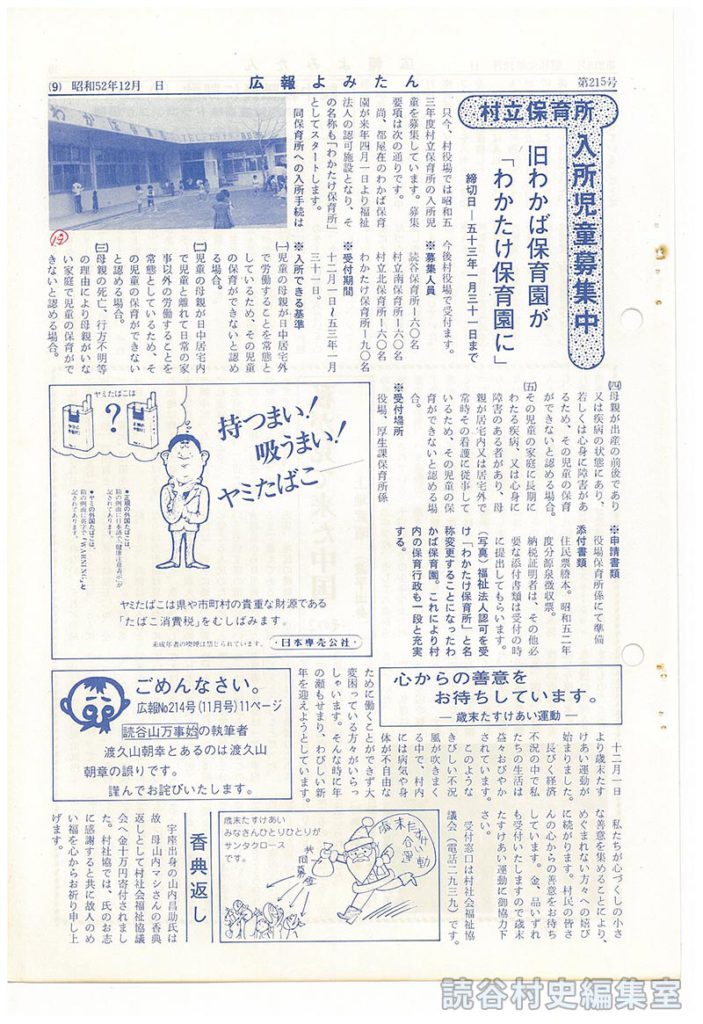 (9) 昭和52年12月　日
広報よみたん
第215号
村立保育所
入所児童募集中
旧わかば保育園が
「わかたけ保育園に」
締切日―五十三年一月三十一日まで
只今、村役場では昭和五
三年度村立保育所の入所児
童を募集しています。募集
要項は次の通りです。
尚、都屋在のわかば保育
園が来年四月一日より福祉
法人の認可施設となり、そ
の名称も「わかたけ保育所」
としてスタートします。
同保育所への入所手続は
今後村役場で受付ます。
※募集人員
読谷保育所―六〇名
村立南保育所―六〇名
村立北保育所―六〇名
わかたけ保育所―九〇名
※受付期間
十二月一日～五三年一月
三十一日。
※入所できる基準
(一)児童の母親が日中居宅外
で労働することを常態と
しているため、その児童
の保育ができないと認め
る場合。
(二)児童の母親が日中居宅内
で児童と離れて日常の家
事以外の労働することを
常態としているため、そ
の児童の保育ができない
と認める場合。
(三)母親の死亡、行方不明等
の理由により母親がいな
い家庭で児童の保育がで
きないと認める場合。
(四)母親が出産の前後であり
又は疾病の状態にあり、
若しくは心身に障害があ
るため、その児童の保育
ができないと認める場合。
(五)その児童の家庭に長期に
わたる疾病、又は心身に
障害のある者があり、母
親が居宅内又は居宅外で
常時その看護に従事して
いるため、その児童の保
育ができないと認める場
合。
※受付場所
役場、厚生課保育所係
※申請書類
役場保育所係にて準備
添付書類
住民票謄本。昭和五二年
度分源泉徴収票。
納税証明者は、その他必
要な添付書類は受付の時
に提出してもらいます。
（写真）福祉法人認可を受
け「わかたけ保育所」と名
称変更することになったわ
かば保育園。これにより村
内の保育行政も一段と充実
する。
ヤミたばこは
？
持つまい！
吸うまい！
ヤミたばこ
●正規の外国たばこは、
箱の側面に日本語で「健康注意表示」が
記されてあります。
●ヤミの外国たばこは、
箱の側面に英字で「WARNING」と
記されてあります。
ヤミたばこは県や市町村の貴重な財源である
「たばこ消費税」をむしばみます。
未成年者の喫煙は禁じられています。
・日本専売公社・
ごめんなさい。
広報No214号(11月号)11ページ
読谷山万事始の執筆者
渡久山朝幸とあるのは渡久山
朝章の誤りです。
謹んでお詫びいたします。
心からの善意を
お待ちしています。
― 歳末たすけあい運動 ―
十二月一日
より歳末たす
けあい運動が
始まりました。
長びく経済
不況の中で私
たちの生活は
益々おびやか
されています。
このような
きびしい不況
風が吹きまく
る中で、村内
には病気や身
体が不自由な
ために働くことができず大
変困っている方々がいらっ
しゃいます。そんな時に年
の瀬もせまり、わびしい新
年を迎えようとしています。
私たちが心づくしの小さ
な善意を集めることにより、
めぐまれない方々への嬉び
に続がります。村民の皆さ
んの心からの善意をお待ち
しています。金、品いずれ
も受付いたしますので歳末
たすけあい運動に御協力下
さい。
受付窓口は村社会福祉協
議会（電話二九三九）です。
歳末たすけあい
みなさんひとりひとりが
サンタクロース
です。
歳末たすけ合運動
共同募金
香典返し
宇座出身の山内昌助氏は
故　母山内マシさんの香典
返しとして村社会福祉協議
会へ金十万円寄付されまし
た。村社協では、氏のお志
に感謝すると共に故人のめ
い福を心からお祈り申し上
げます。
読谷村史編集室